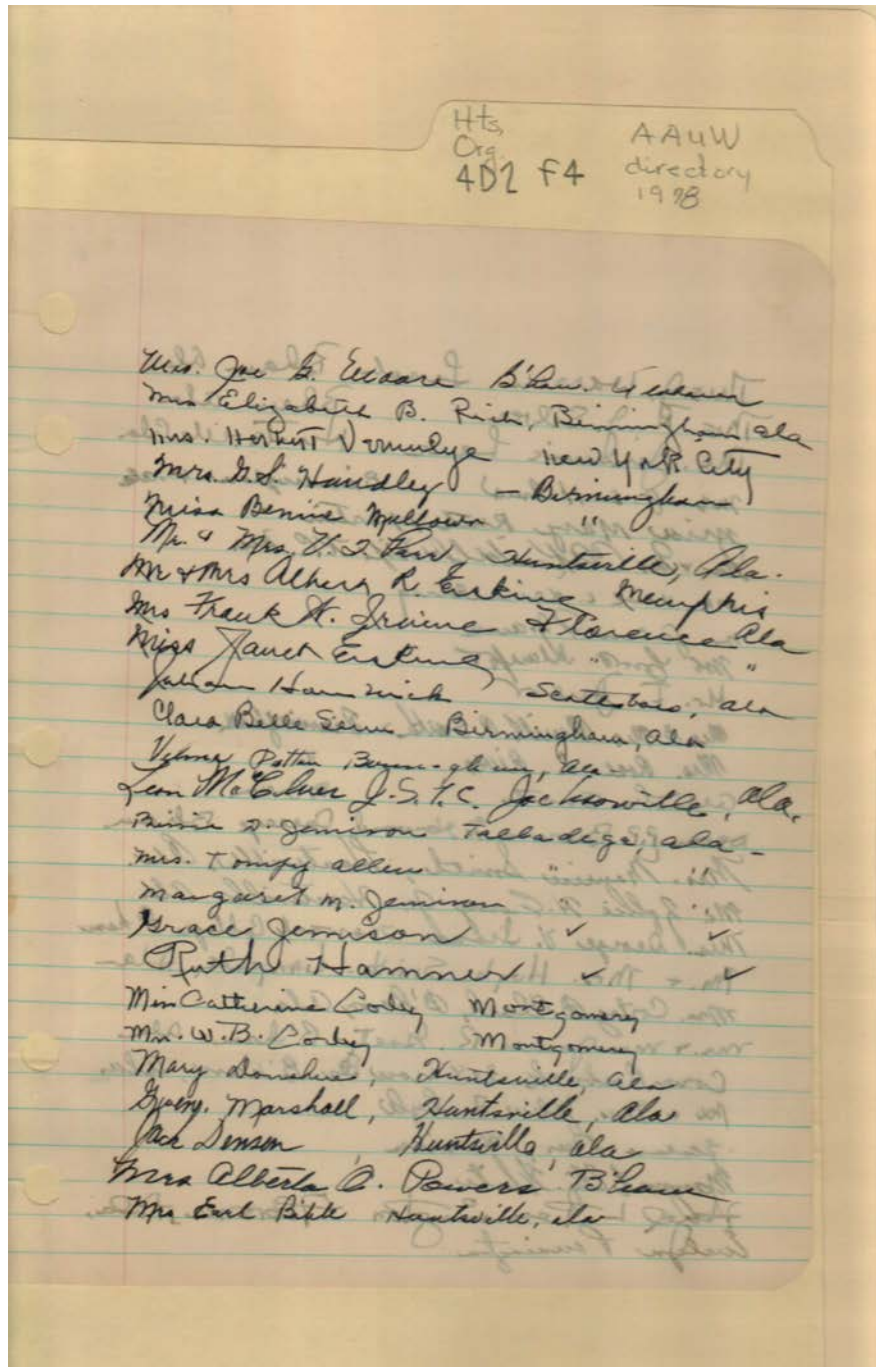 Hts,
Org.
4D2 F4
AAUW
directory
1978
Mrs. Joe G. Moore B'ham.
Mrs Elizabeth B. Rich, Birmingham ala
Mrs. Herbert Vermulye New York City
Mrs. G.S. Handley — Birmingham
Miss Bennie "
Mr. & Mrs. V. I. Huntsville, Ala.
Mr & Mrs Albert R. Erskine Memphis
Mrs Frank Irvine Florence Ala
Miss Janet Erskine " "
Hamrick Scottsboro, ala
Clara Belle Birmingham, ala
Velma Patten ala
Leon McCluer J.S.T.C. Jacksonville, Ala.
D. Jemison Talladega, ala —
Mrs. allen " "
Margaret M. Jemison
Grace Jemison ✓ ✓
Ruth Hamner ✓ ✓
Miss Catherine Corley Montgomery
Mrs. W.B. Corley Montgomery
Mary Donahue, Huntsville, ala
Marshall, Huntsville, Ala
Jack Denson, Huntsville, ala
Mrs Alberta Powers B'ham
Mrs Earl Bibb Huntsville, ala